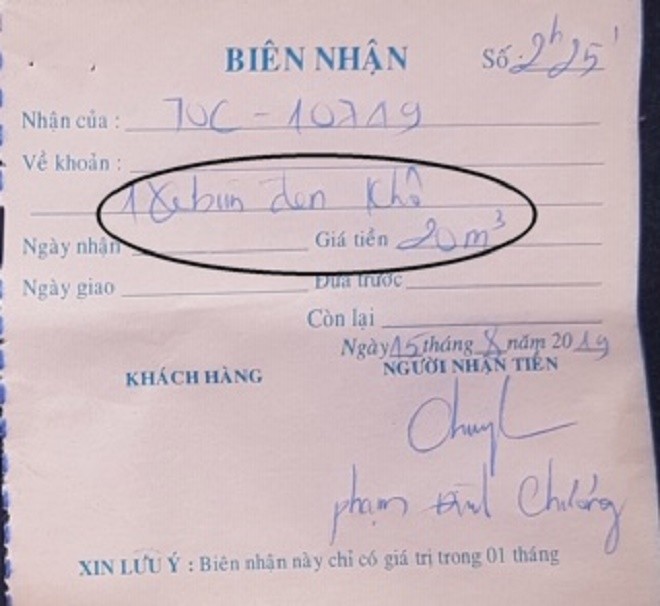 BIÊN NHẬN
Số: 2h25'
Nhận của : 70C - 10719
Về khoản :
1 Xe bùn đen Khô
Ngày nhận Giá tiền 20 m³
Ngày giao Đưa trước
Còn lại
Ngày 15 tháng 8 năm 2019
KHÁCH HÀNG NGƯỜI NHẬN TIỀN
phạm Chương
XIN LƯU Ý : Biên nhận này chỉ có giá trị trong 01 tháng